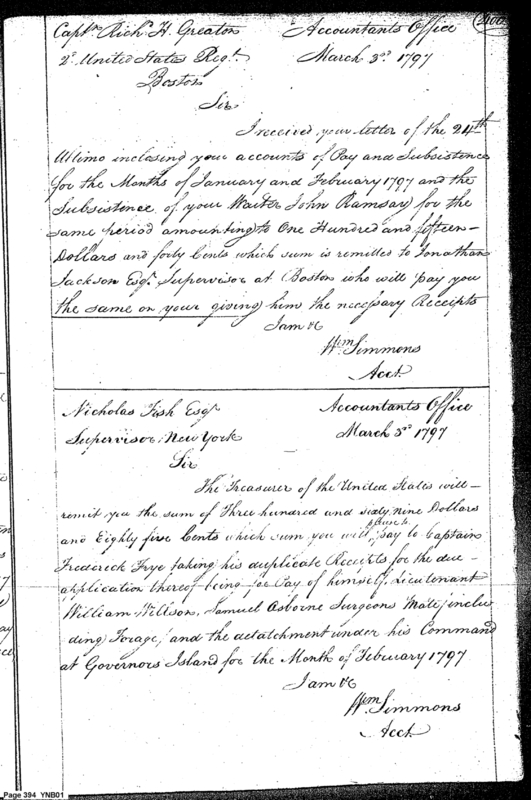 Captn Richd H. Greaton Accountants Office
2d United States Regt March 3d 1797
Boston
Sir
I received your letter of the 24th
Ultimo inclosing your accounts of Pay and Subsistence
for the Months of January and February 1797 and the
Subsistence of your Waiter John Ramsay for the
same period amounting to One Hundred and fifteen
Dollars and forty Cents which sum is remitted to Jonathan
Jackson Esqr Supervisor at Boston who will pay you
the same on your giving him the necessary Receipts
I am &c
Wm Simmons
Acct
Nicholas Fish Esqr Accountants Office
Supervisor New York March 3d 1797
Sir
The Treasurer of the United States will
remit you the sum of Three hundred and sixty nine Dollars
and Eighty five Cents which sum you will please to pay to Captain
Frederick Frye taking his duplicate Receipts for the due
application thereof being for Pay of himself, Lieutenant
William Willson, Samuel Osborne Surgeons Mate, inclu
ding Forage, and the detatchment under his Command
at Governors Island for the Month of February 1797
I am &c
Wm Simmons
Acct
Page 394 YNB01